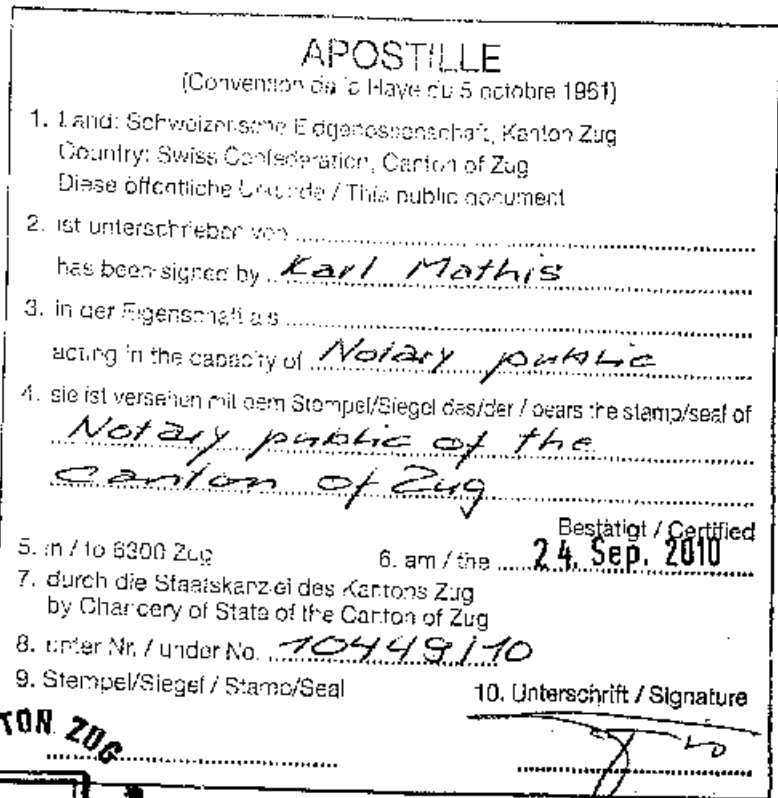 APOSTILLE
(Convention de la Haye du 5 octobre 1961)
1. Land: Schweizerische Eidgenossenschaft, Kanton Zug
Country: Swiss Confederation, Canton of Zug
Diese öffentliche Urkunde / This public document
2. ist unterschrieben von
has been signed by Karl Mathis
3. in der Eigenschaft als
acting in the capacity of Notary public
4. sie ist versehen mit dem Stempel/Siegel das/der / bears the stamp/seal of
Notary public of the
Canton of Zug
Bestätigt / Certified
5. in / to 6300 Zug 6. am / the 24. Sep. 2010
7. durch die Staatskanzlei des Kantons Zug
by Chancery of State of the Canton of Zug
8. unter Nr. / under No. 10449/10
9. Stempel/Siegel / Stamp/Seal 10. Unterschrift / Signature
TON ZUG